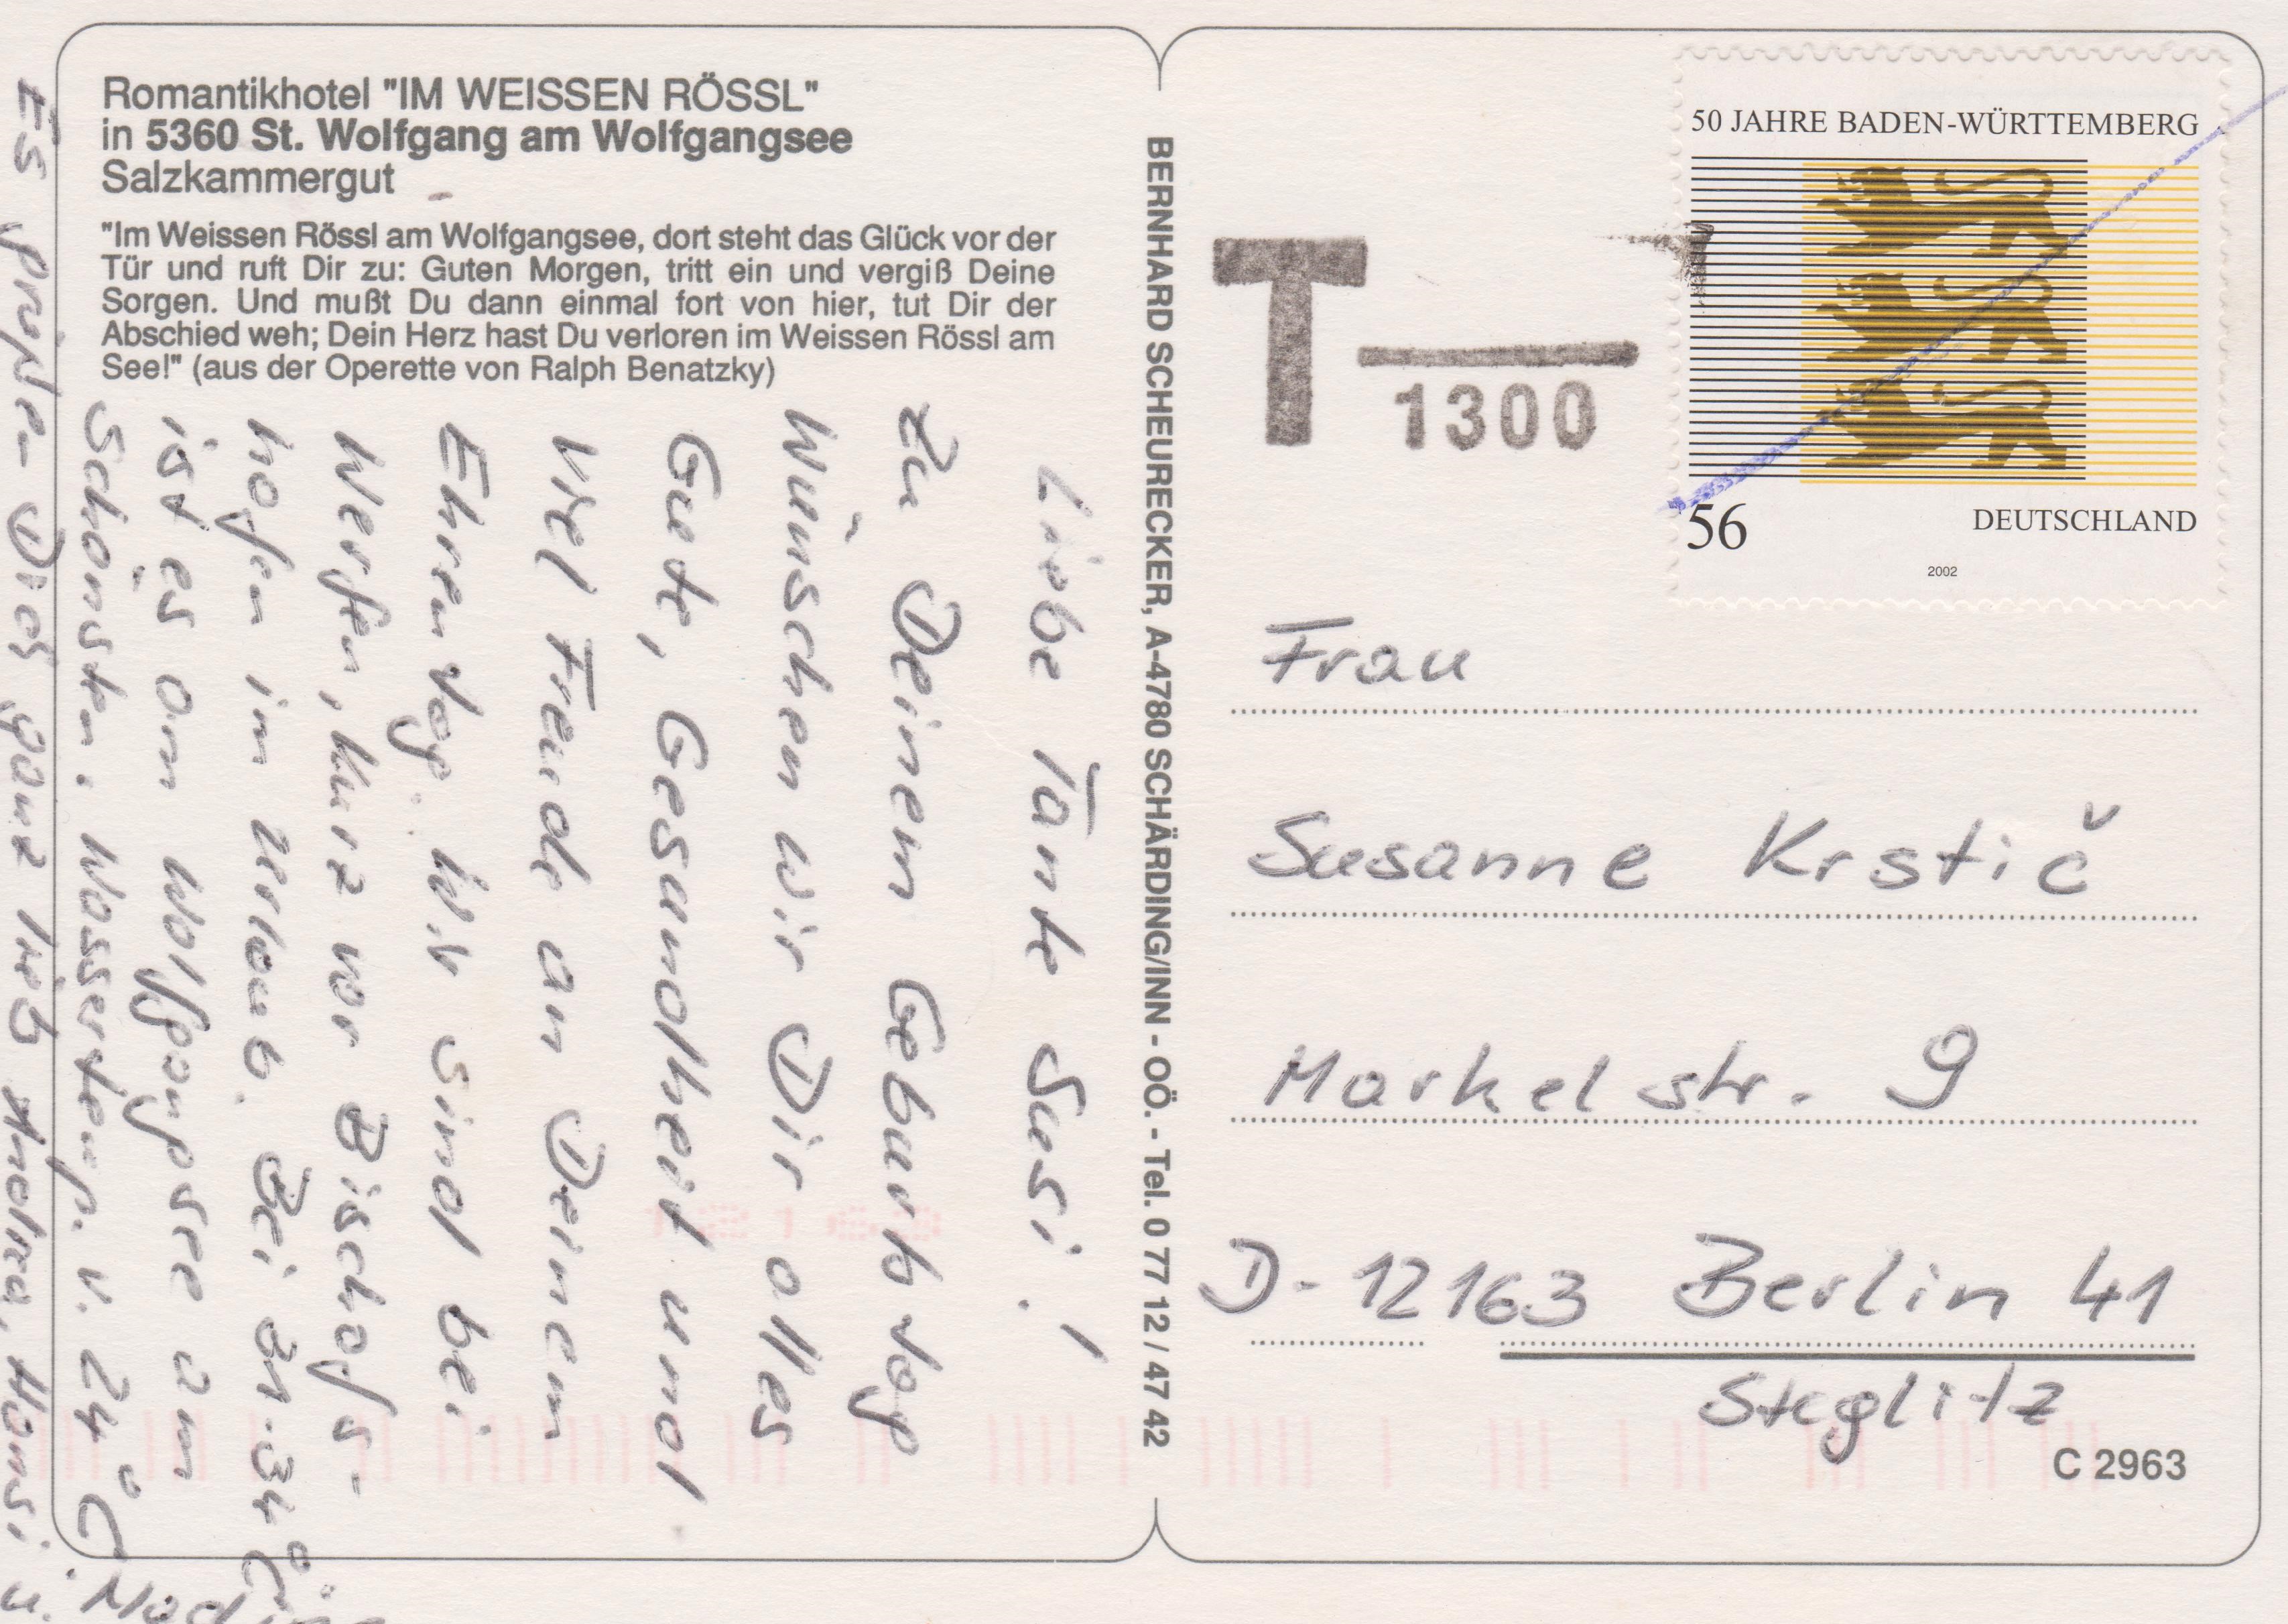 Romantikhotel "IM WEISSEN RÖSSL"
in 5360 St. Wolfgang am Wolfgangsee
Salzkammergut
"Im Weissen Rössl am Wolfgangsee, dort steht das Glück vor der
Tür und ruft Dir zu: Guten Morgen, tritt ein und vergiß Deine
Sorgen. Und mußt Du dann einmal fort von hier, tut Dir der
Abschied weh; Dein Herz hast Du verloren im Weissen Rössl am
See!" (aus der Operette von Ralph Benatzky)
Liebe Tante Susi!
zu Deinem Geburtstag
wünschen wir Dir alles
Gute, Gesundheit und
viel Freude an Deinem
Ehrentag. Wir sind bei
Werfen, kurz vor Bischofs-
hofen im Urlaub. Bei 31-34°C
ist es am Wolfgangsee am
Schönsten. Wassertemp. v. 24°C.
Es grüßen Dich ganz lieb Andrea, Hansi u.
BERNHARD SCHEURECKER, A-4780 SCHÄRDING/INN - OÖ. - Tel. 0 77 12 / 47 42
T
1300
50 JAHRE BADEN-WÜRTTEMBERG
56
DEUTSCHLAND
2002
Frau
Susanne Krstič
Markelstr. 9
D-12163 Berlin 41
Steglitz
C 2963